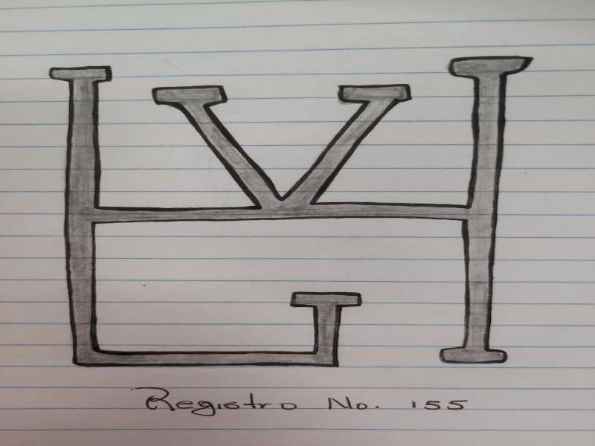 Registro No. 155